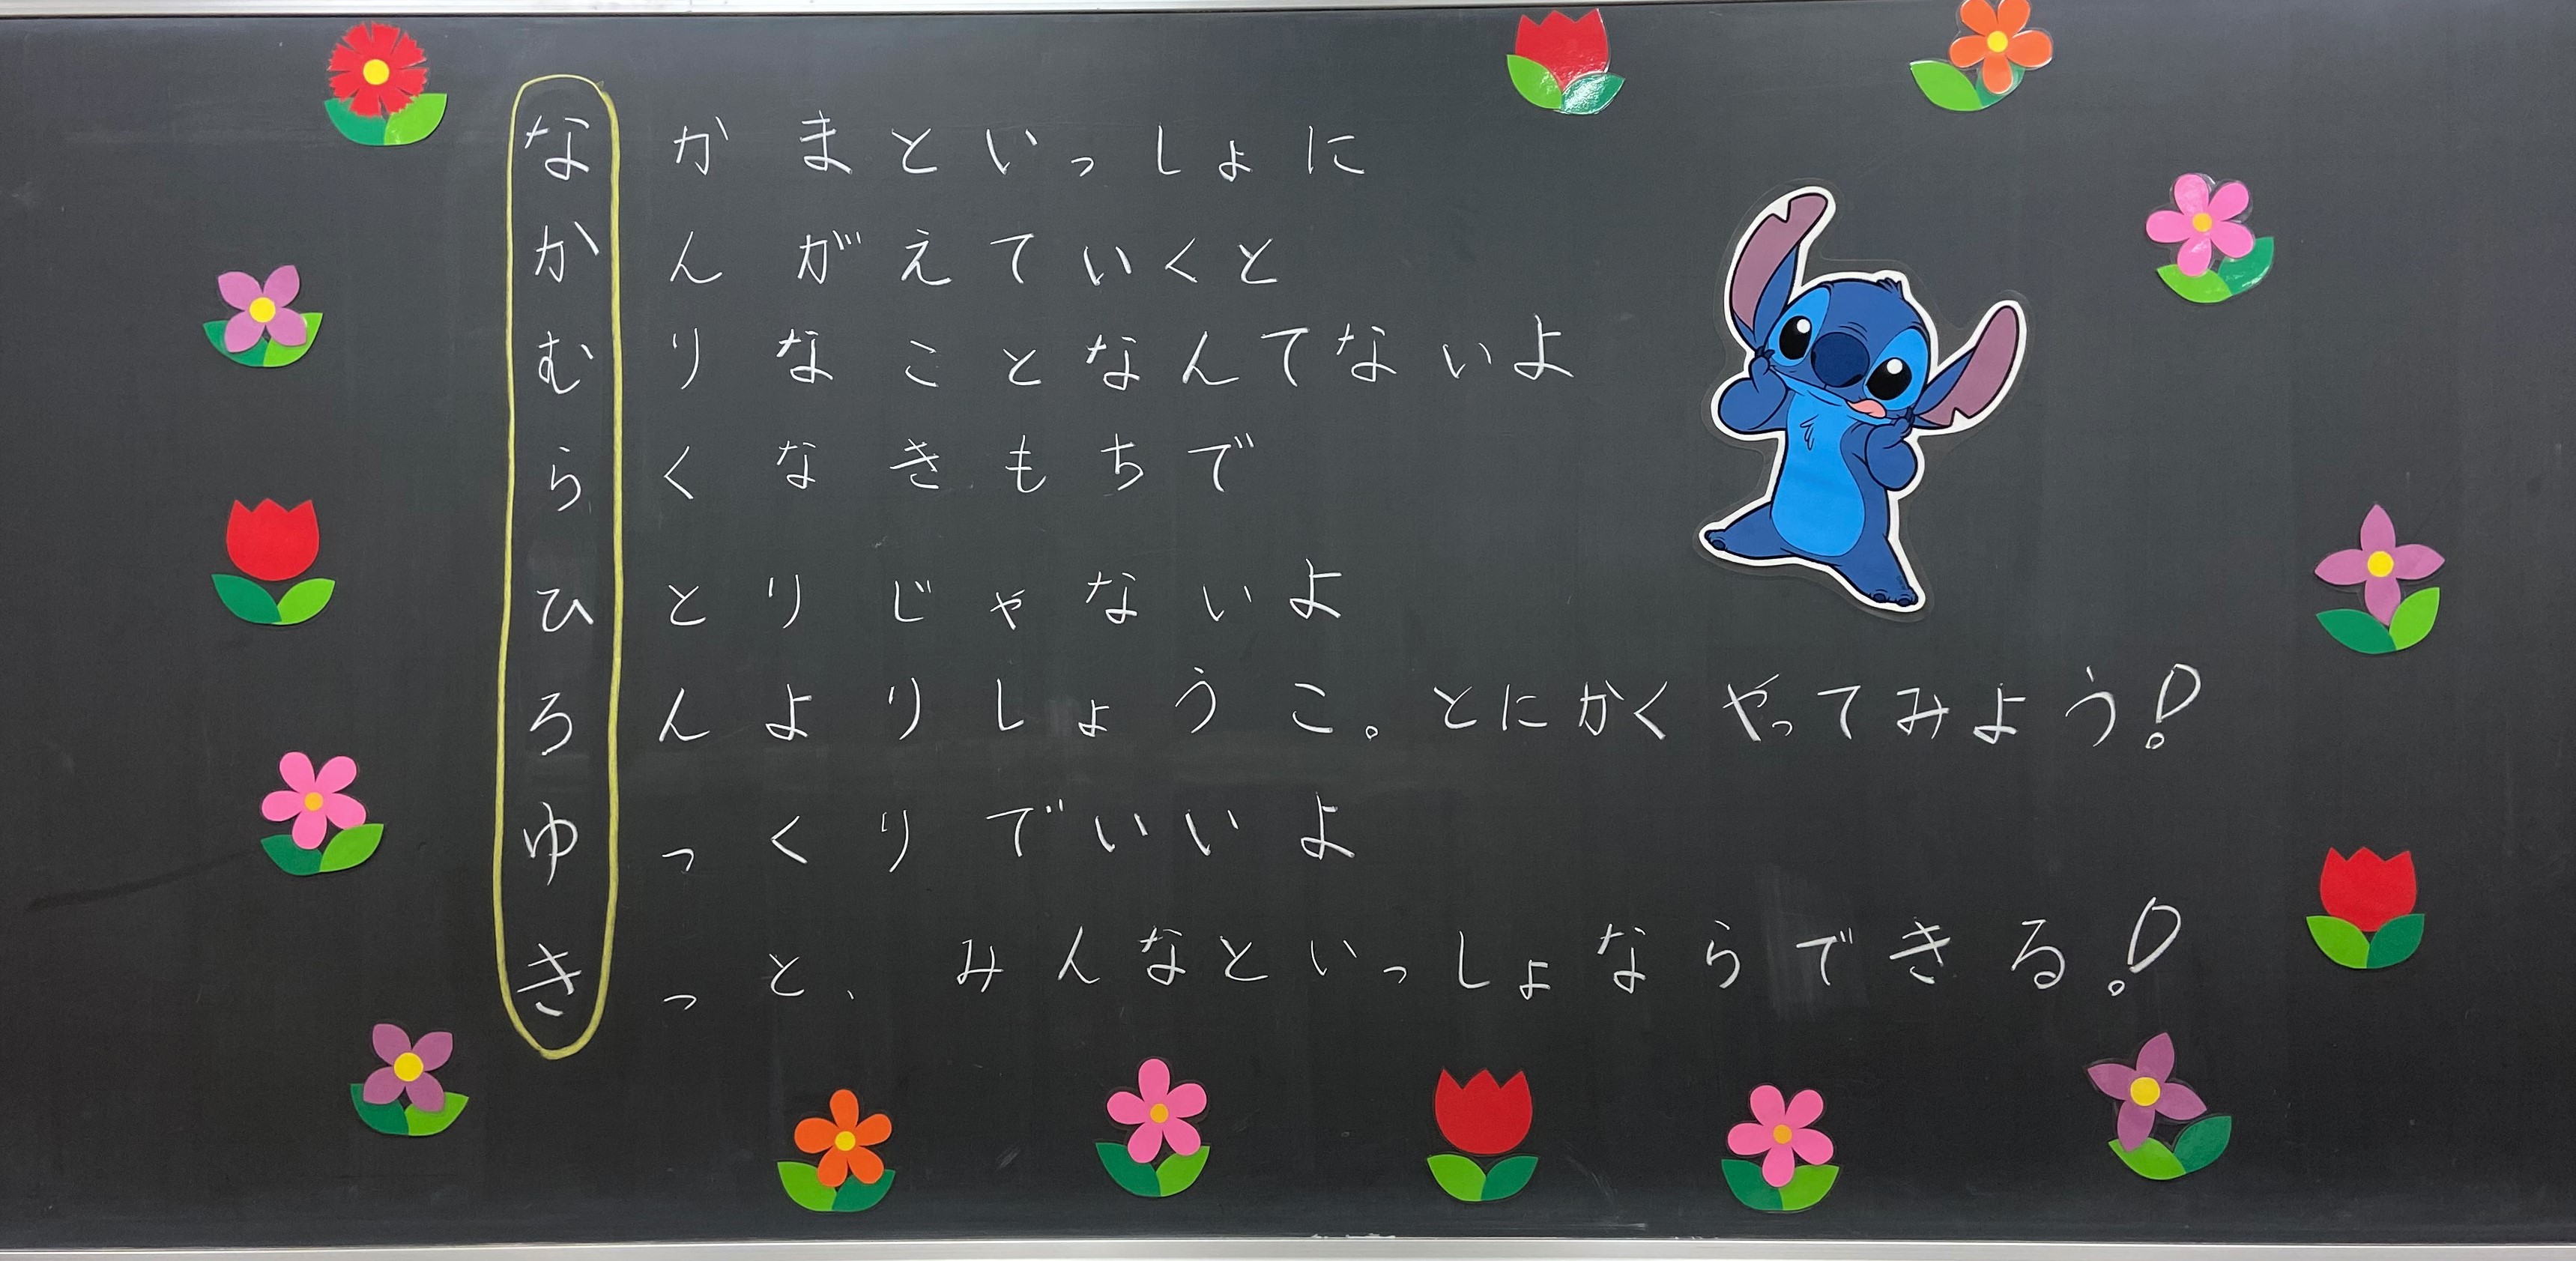 なかまといっしょに
かんがえていくと
むりなことなんてないよ
らくなきもちで
ひとりじゃないよ
ろんよりしょうこ。とにかくやってみよう!
ゆっくりでいいよ
きっと、みんなといっしょならできる!